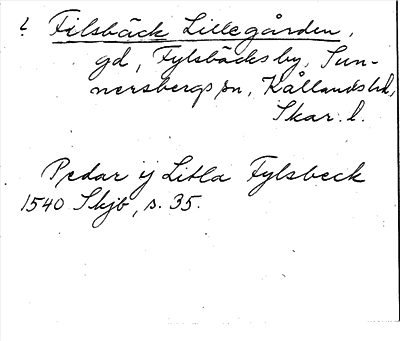 ! Filsbäck Lillegården,
gd, Fylsbäcks by, Sun-
nersbergs sn, Kållands hd,
Skar. l.
Pedar ij Litla Fylsbeck
1540 Skjb, s. 35.